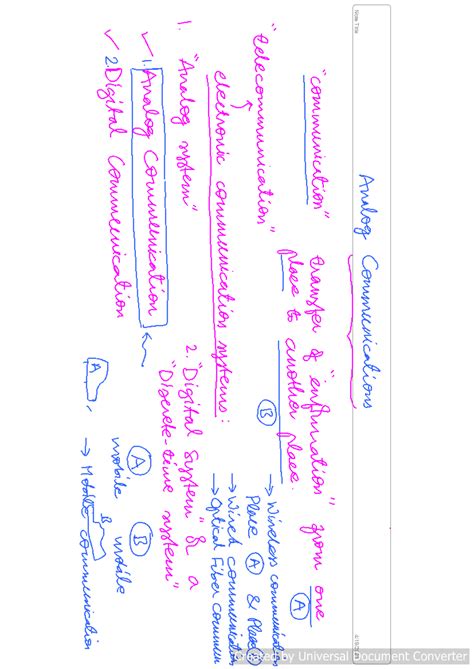 Note Title
Analog Communications
"communication" transfer of "information" from one
place to another place. A
B
→ Wireless communication
"telecommunication" Place A & Place B
→ Wired communication
electronic communication systems: → Optical Fiber commun
1. "Analog system" 2. "Digital System" & a
"Discrete-time system"
✓ 1. Analog Communication ← A B
mobile mobile
✓ 2. Digital Communication A B
→ Mobile communication
Created by Universal Document Converter